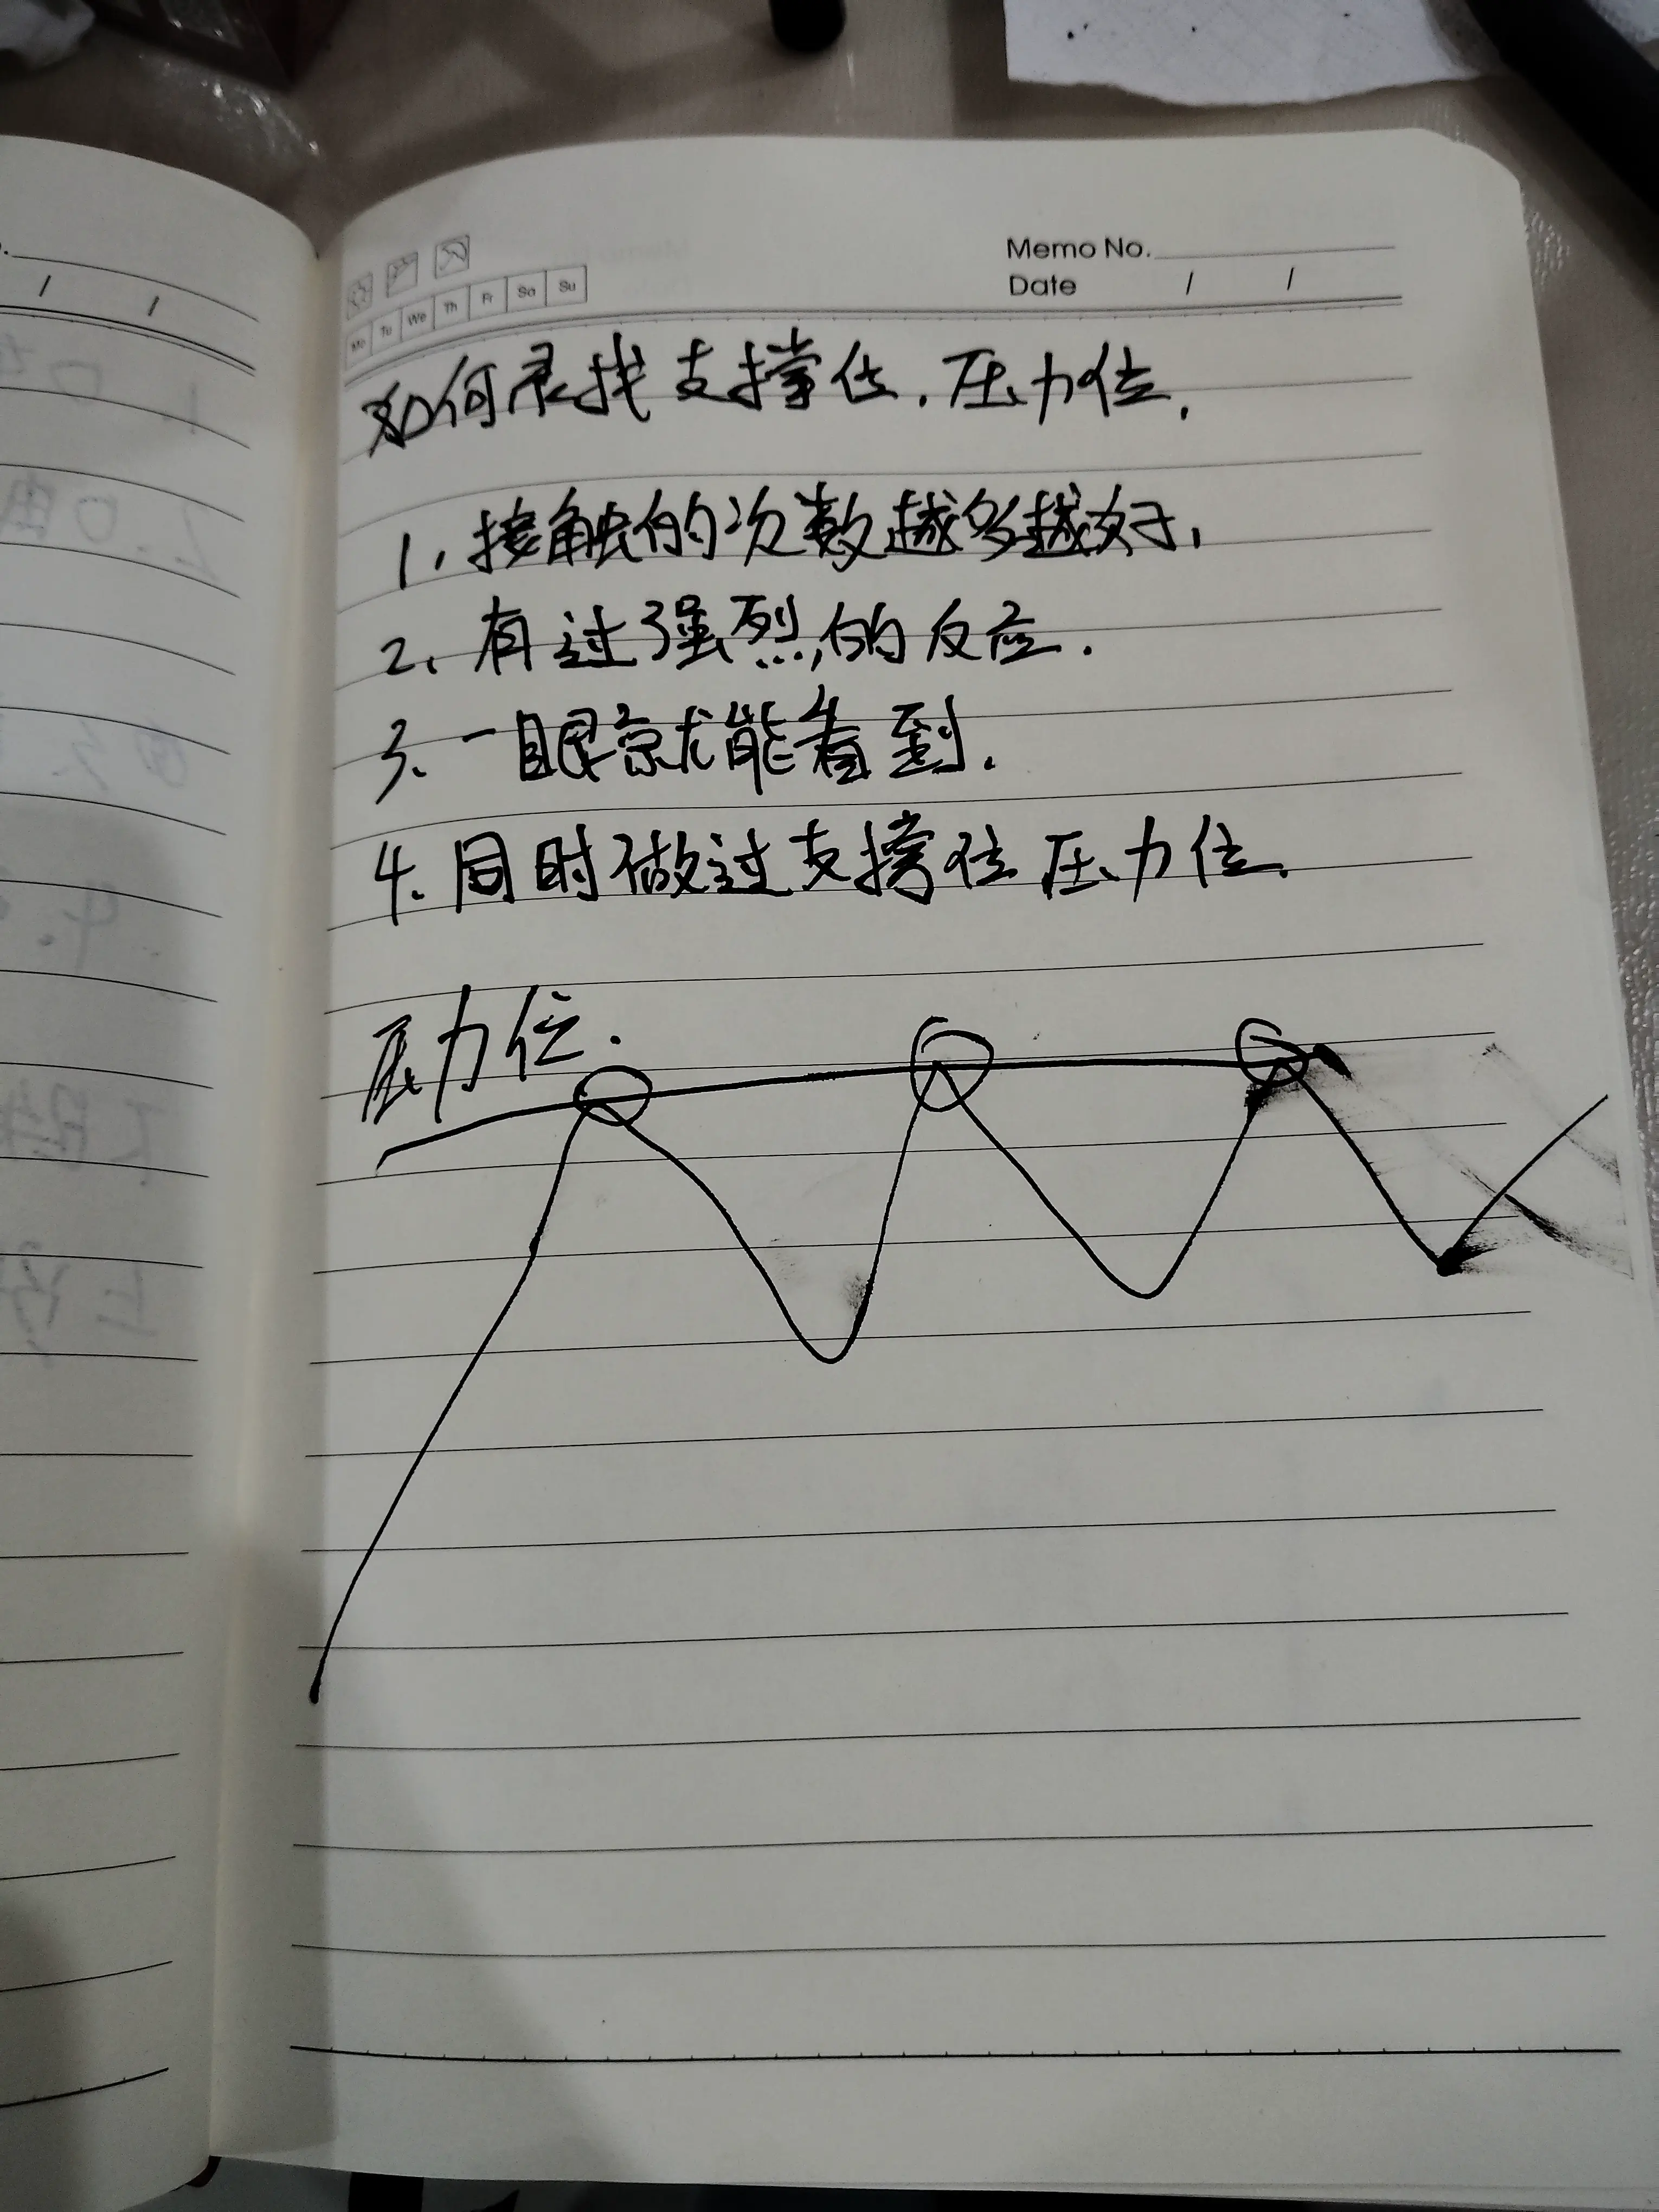 Memo No.
Date / /
Mo Tu We Th Fr Sa Su
如何寻找支撑位.压力位.
1.接触的次数越多越好.
2.有过强烈的反应.
3.一眼就能看到.
4.同时做过支撑位压力位.
压力位.